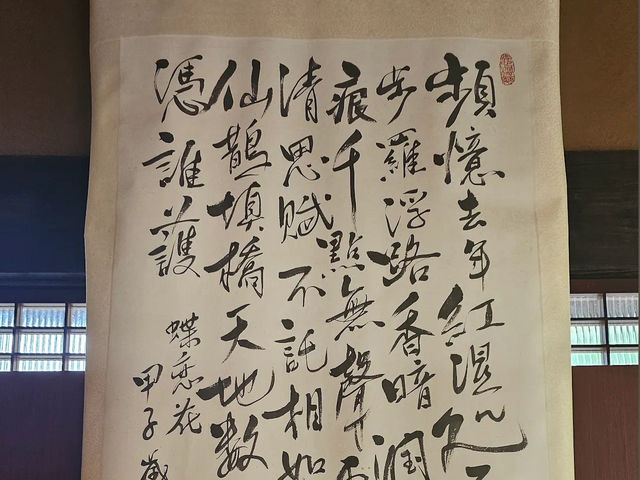 頻憶去年紅濕処
步羅浮路香暗潤
痕千點無聲
清思賦不託相如
仙鵲填橋天地數
憑誰護
蝶恋花
甲子歲